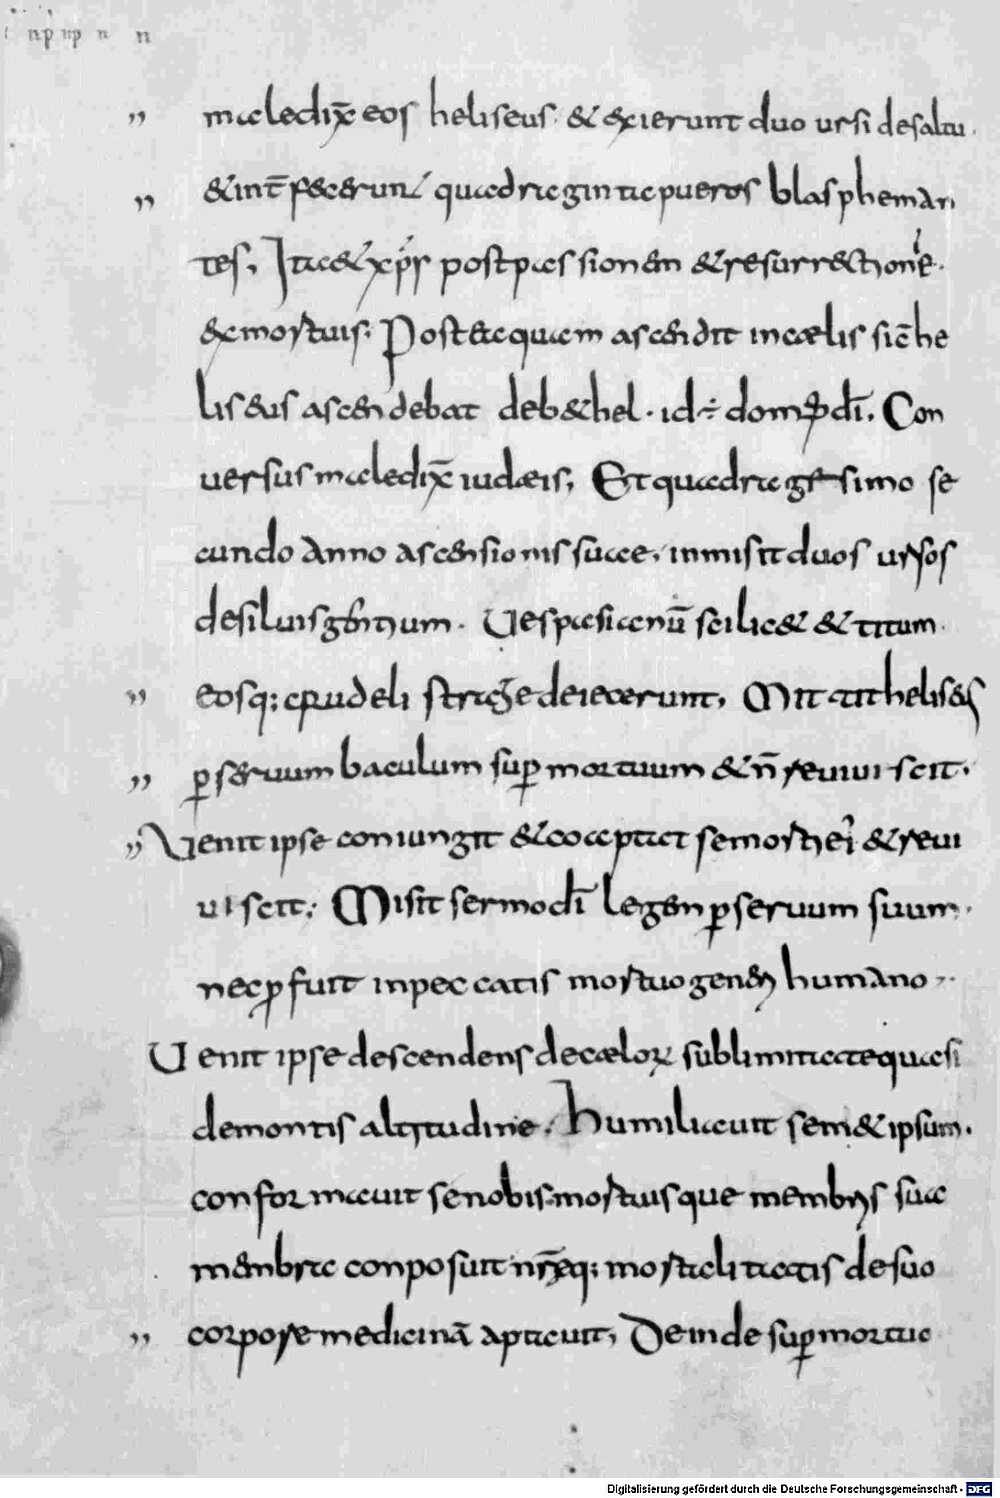 n p up n n
” maledix̄ eos heliseus· & exierunt duo ursi desaltu·
” &int̄fecerunt quadraginta pueros blasphemān
tes, Ita& xp̄s postpassionem &resurrectionē·
exmortuis· Postea quam ascendit incælis sic̄he
liseus ascendebat deb&hel· id÷ domꝰ dī. Con
versus maledix̄ iudæis, Et quadragesimo se
cundo anno ascensionis suae, inmisit duos ursos
desiluis gentium· Uespasianū scilic& & titum·
” eosq; crudeli strage deiecerunt, Mittit heliseus
” ꝑ seruum baculum suꝑ mortuum & n̄ reuiuiscit,
” Uenit ipse coniungit &coaptat semortiei &reui
uiscit; Misit sermo dī legem ꝑ seruum suum·
nec ꝓfuit inpeccatis mortuo generi humano·
Uenit ipse descendens decæloꝝ sublimitate quasi
demontis altitudine, humiliauit sem&ipsum·
conformauit se nobis·mortuisque membris sua
membra conposuit nr̄eq; mortalitatis de suo
” corpore medicinā aptauit, Deinde suꝑ mortuo
Digitalisierung gefördert durch die Deutsche Forschungsgemeinschaft - DFG